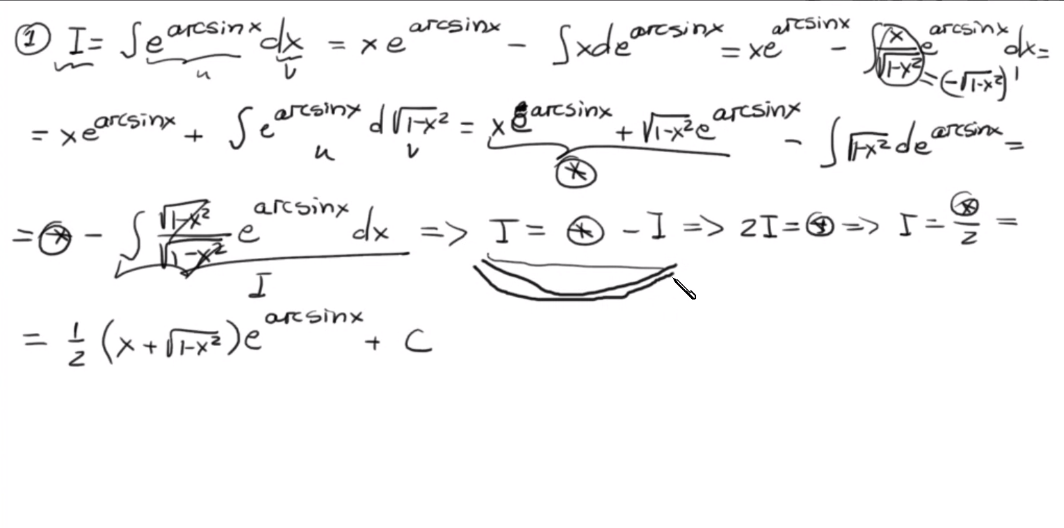 ① I = ∫ e^{arcsinx} dx = x e^{arcsinx} − ∫ x d e^{arcsinx} = x e^{arcsinx} − ∫ \frac{x}{\sqrt{1-x^2}} e^{arcsinx} dx =
u v = (−\sqrt{1-x^2})'
= x e^{arcsinx} + ∫ e^{arcsinx} d\sqrt{1-x^2} = x e^{arcsinx} + \sqrt{1-x^2} e^{arcsinx} − ∫ \sqrt{1-x^2} d e^{arcsinx} =
u v ⊛
= ⊛ − ∫ \frac{\sqrt{1-x^2}}{\sqrt{1-x^2}} e^{arcsinx} dx => I = ⊛ − I => 2I = ⊛ => I = \frac{⊛}{2} =
I
= \frac{1}{2} (x + \sqrt{1-x^2}) e^{arcsinx} + C